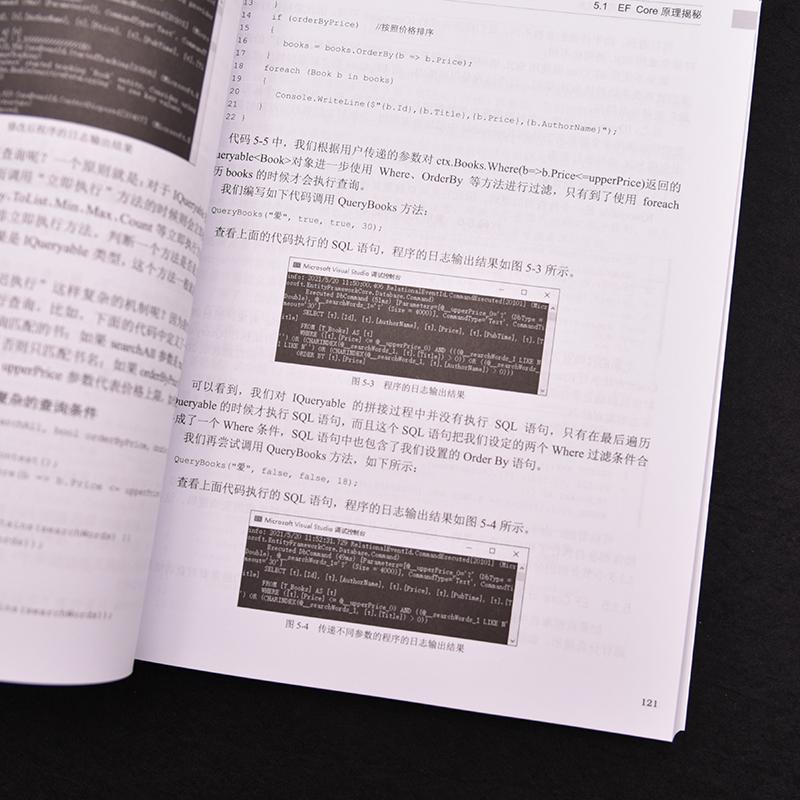 修改后程序的日志输出结果
查询呢？一个原则就是：对于 IQueryable
而调用“立即执行”方法的时候则会立
y、ToList、Min、Max、Count 等立即执行
立即执行方法。判断一个方法是否
果是 IQueryable 类型，这个方法一般
迟执行”这样复杂的机制呢？因为
行查询。比如，下面的代码中定义了
询匹配的书；如果 searchAll 参数是
否则只匹配书名；如果 orderByPrice
upperPrice 参数代表价格上限。
复杂的查询条件
earchAll, bool orderByPrice,
ontext();
ere(b => b.Price <= upperPrice
ntains(searchWords) ||
rds));
ains(searchWords));
5.1 EF Core 原理揭秘
13 }
14 if (orderByPrice) //按照价格排序
15 {
16 books = books.OrderBy(b => b.Price);
17 }
18 foreach (Book b in books)
19 {
20 Console.WriteLine($"{b.Id},{b.Title},{b.Price},{b.AuthorName}");
21 }
22 }
代码 5-5 中，我们根据用户传递的参数对 ctx.Books.Where(b=>b.Price<=upperPrice)返回的
ueryable<Book>对象进一步使用 Where、OrderBy 等方法进行过滤，只有到了使用 foreach
历 books 的时候才会执行查询。
我们编写如下代码调用 QueryBooks 方法：
QueryBooks("爱", true, true, 30);
查看上面的代码执行的 SQL 语句，程序的日志输出结果如图 5-3 所示。
Microsoft Visual Studio 调试控制台
info: 2021/5/20 11:50:00.406 RelationalEventId.CommandExecuted[20101] (Microsoft.EntityFrameworkCore.Database.Command)
Executed DbCommand (51ms) [Parameters=[@__upperPrice_0='?' (DbType =
Double), @__searchWords_1='?' (Size = 4000)], CommandType='Text', CommandTi
meout='30']
SELECT [t].[Id], [t].[AuthorName], [t].[Price], [t].[PubTime], [t].[T
itle]
FROM [T_Books] AS [t]
WHERE ([t].[Price] <= @__upperPrice_0) AND (((@__searchWords_1 LIKE N
'') OR (CHARINDEX(@__searchWords_1, [t].[Title]) > 0)) OR ((@__searchWords_
1 LIKE N'') OR (CHARINDEX(@__searchWords_1, [t].[AuthorName]) > 0)))
ORDER BY [t].[Price]
图 5-3 程序的日志输出结果
可以看到，我们对 IQueryable 的拼接过程中并没有执行 SQL 语句，只有在最后遍历
Queryable 的时候才执行 SQL 语句，而且这个 SQL 语句把我们设定的两个 Where 过滤条件合
成了一个 Where 条件，SQL 语句中也包含了我们设置的 Order By 语句。
我们再尝试调用 QueryBooks 方法，如下所示：
QueryBooks("爱", false, false, 18);
查看上面代码执行的 SQL 语句，程序的日志输出结果如图 5-4 所示。
Microsoft Visual Studio 调试控制台
info: 2021/5/20 11:52:31.729 RelationalEventId.CommandExecuted[20101] (Micro
soft.EntityFrameworkCore.Database.Command)
Executed DbCommand (49ms) [Parameters=[@__upperPrice_0='?' (DbType =
Double), @__searchWords_1='?' (Size = 4000)], CommandType='Text', CommandTi
meout='30']
SELECT [t].[Id], [t].[AuthorName], [t].[Price], [t].[PubTime], [t].[T
itle]
FROM [T_Books] AS [t]
WHERE ([t].[Price] <= @__upperPrice_0) AND ((@__searchWords_1 LIKE N'
') OR (CHARINDEX(@__searchWords_1, [t].[Title]) > 0))
图 5-4 传递不同参数的程序的日志输出结果
121